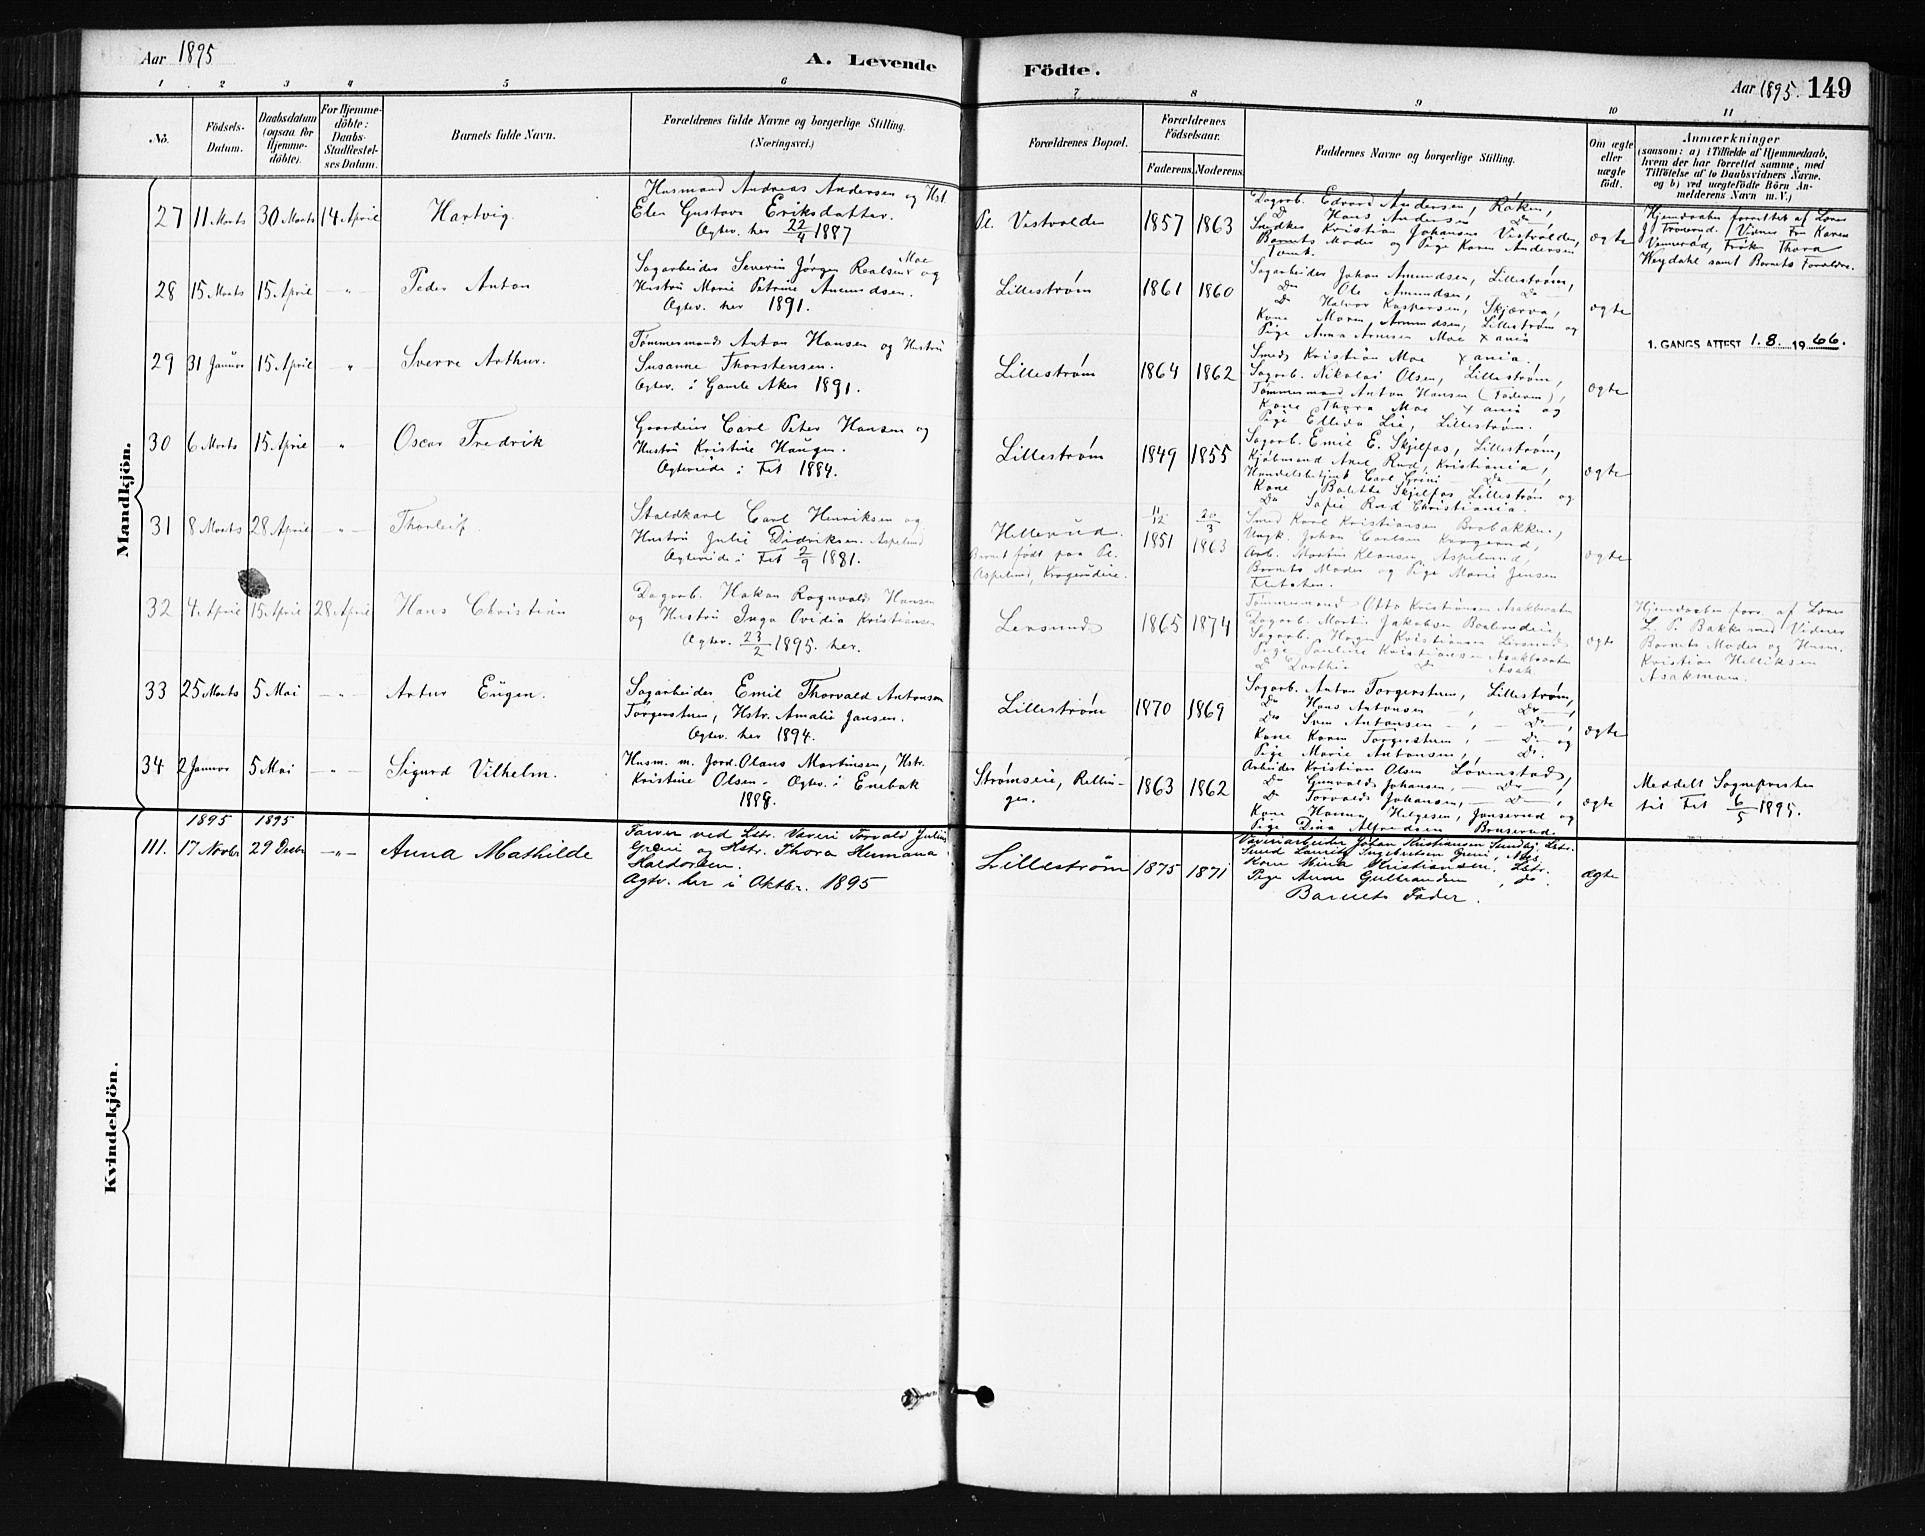 Aar 1895
A. Levende
Födte.
Aar 1895. 149
1 2 3 4 5 6 7 8 9 10 11
No.
Födsels-
Datum.
Daabsdatum
(ogsaa for
Hjemme-
döbte).
For Hjemme-
döbte:
Daabs-
Stadfæstel-
ses Datum.
Barnets fulde Navn.
Forældrenes fulde Navne og borgerlige Stilling.
(Næringsvei.)
Forældrenes Bopæl.
Forældrenes
Födselsaar.
Faderens. Moderens.
Faddernes Navne og borgerlige Stilling.
Om ægte
eller
uægte
födt.
Anmærkninger
(saasom: a) i Tilfælde af Hjemmedaab,
hvem der har forrettet samme, med
Tilföielse af to Daabsvidners Navne.
og b) ved uægtefödte Börn An-
melderens Navn m. V.)
Mandkjön.
27 11 Marts 30 Marts 14 April
Hartvig.
Husmand Andreas Andersen og Hst.
Elen Gustava Eriksdatter.
Ægtev. her 22/4 1887
Pl. Vestvolden
1857 1863
Dagarb. Edvard Andersen, Raken,
D. Hans Andersen Do
Snedker Kristian Johansen Vestvolden,
Barnets Moder og Pige Karen Andersen
Tomt.
ægte
Hjemdaaben forrettet af Lærer
J. Tronerud. Vidner Fru Karen
Vennerød, Frøk. Thora
Heydahl samt Barnets Forældre.
28 15 Marts 15 April - " -
Peder Anton
Sagarbeider Severin Jørgen Realsen Moe og
Hustru Marie Petrine Amundsen.
Ægtev. her 1891.
Lillestrøm
1861 1860
Sagarbeider Johan Amundsen, Lillestrøm,
Do Ole Amundsen, Do
D. Halvor Kaspersen, Skjærva,
Kone Maren Amundsen, Lillestrøm og
Pige Anna Arnesen Moe Xania
ægte
1. GANGS ATTEST 1.8. 1966.
29 31 Januar 15 April "
Sverre Arthur.
Tømmermand Anton Hansen og Hustru
Susanne Thorstensen.
Ægtev. i Gamle Aker 1891.
Lillestrøm
1864 1862
Smed Kristian Moe Xania.
Sagarb. Nikolai Olsen, Lillestrøm,
Tømmermand Anton Hansen (Faderen),
Kone Thora Moe Xania og
Pige Ellida Lie, Lillestrøm.
ægte
30 6 Marts 15 April "
Oscar Fredrik
Gaardeier Carl Peter Hansen og
Hustru Kristine Haugen.
Ægteviede i Fet 1884.
Lillestrøm
1849 1855
Sagarb. Emil E. Skjelfos, Lillestrøm,
Kjølmand Axel Rud, Kristiania,
Handelsbetjent Carl Grini Do
Kone Bolette Skjelfos Lillestrøm og
Do Sofie Rud Christiania.
ægte
31 8 Marts 28 April - " -
Thorleif.
Staldkarl Carl Henriksen og
Hustru Julie Didriksen. Aspelund
Ægteviede i Fet 2/9 1881.
Hellerud.
Barnet født paa Pl.
Aspelund, Krogerudeie.
11/12 1851 20/3 1863
Smed Karl Kristiansen Brobakken,
Ungk. Johan Carlsen Krogerud,
Arb. Martin Klausen, Aspelund,
Barnets Moder og Pige Marie Jensen
ægte
32 4. April 15 April 28 April
Hans Christian
Dagarb. Hakon Ragnvald Hansen
og Hustru Inga Ovidia Kristiansen
Ægtev. 23/2 1895. her.
Lersund
1865 1874
Tømmermand Otto Kristiansen Asakbraaten
Dagarb. Martin Jakobsen
Sagarb. Hagen Kristiansen Lersund
Pige Pauline Kristiansen Asakbraaten
D. Dorthea Do Asak
ægte
Hjemdaaben forr. af Lærer
L. P. Bakke med Vidner
Barnets Moder og Husm.
Kristian Helliksen
Asakmoen.
33 25 Marts 5 Mai - " -
Artur Eugen.
Sagarbeider Emil Thorvald Antonsen
Torgerstuen, Hstr. Amalie Jansen.
Ægtev. her 1894.
Lillestrøm
1870 1869
Sagarb. Anton Torgerstuen, Lillestrøm,
Do Hans Antonsen, Do,
Do Sven Antonsen - , - Do - ,
Kone Karen Torgerstuen, - D. og
Pige Marie Antonsen, D.
ægte
34 2 Januar 5 Mai - " -
Sigurd Vilhelm.
Husm. m. Jord. Olaus Martinsen, Hstr.
Kristine Olsen. Ægtev. i Enebak
1888.
Strømseie, Rellin-
gen.
1863 1862
Arbeider Kristian Olsen Løvenstad,
Do Gunvald Johansen, Do,
Do Torvald Johansen, D,
Kone Hanna Helgesen, Jonserud og
Pige Dina Alfredsen Bruserud.
ægte
Meddelt Sognepresten
til Fet 6/5 1895.
Kvindekjön.
1895 1895
111. 17 Novbr 29 Decbr - " -
Anna Mathilde
Farver ved Lstr. Væveri Torvald Julius
Greni og Hstr. Thora Hermana
Haldorsen.
Ægtv. her i Oktbr. 1895
Lillestrøm
1875 1871
Væveriarbeider Johan Kristiansen Sundby, Lstr.
Smed Lauritz Ingebretsen Greni, Næs
Kone Mina Kristiansen, Lstr.
Pige Anne Gulbrandsen, do.
Barnets Fader.
ægte